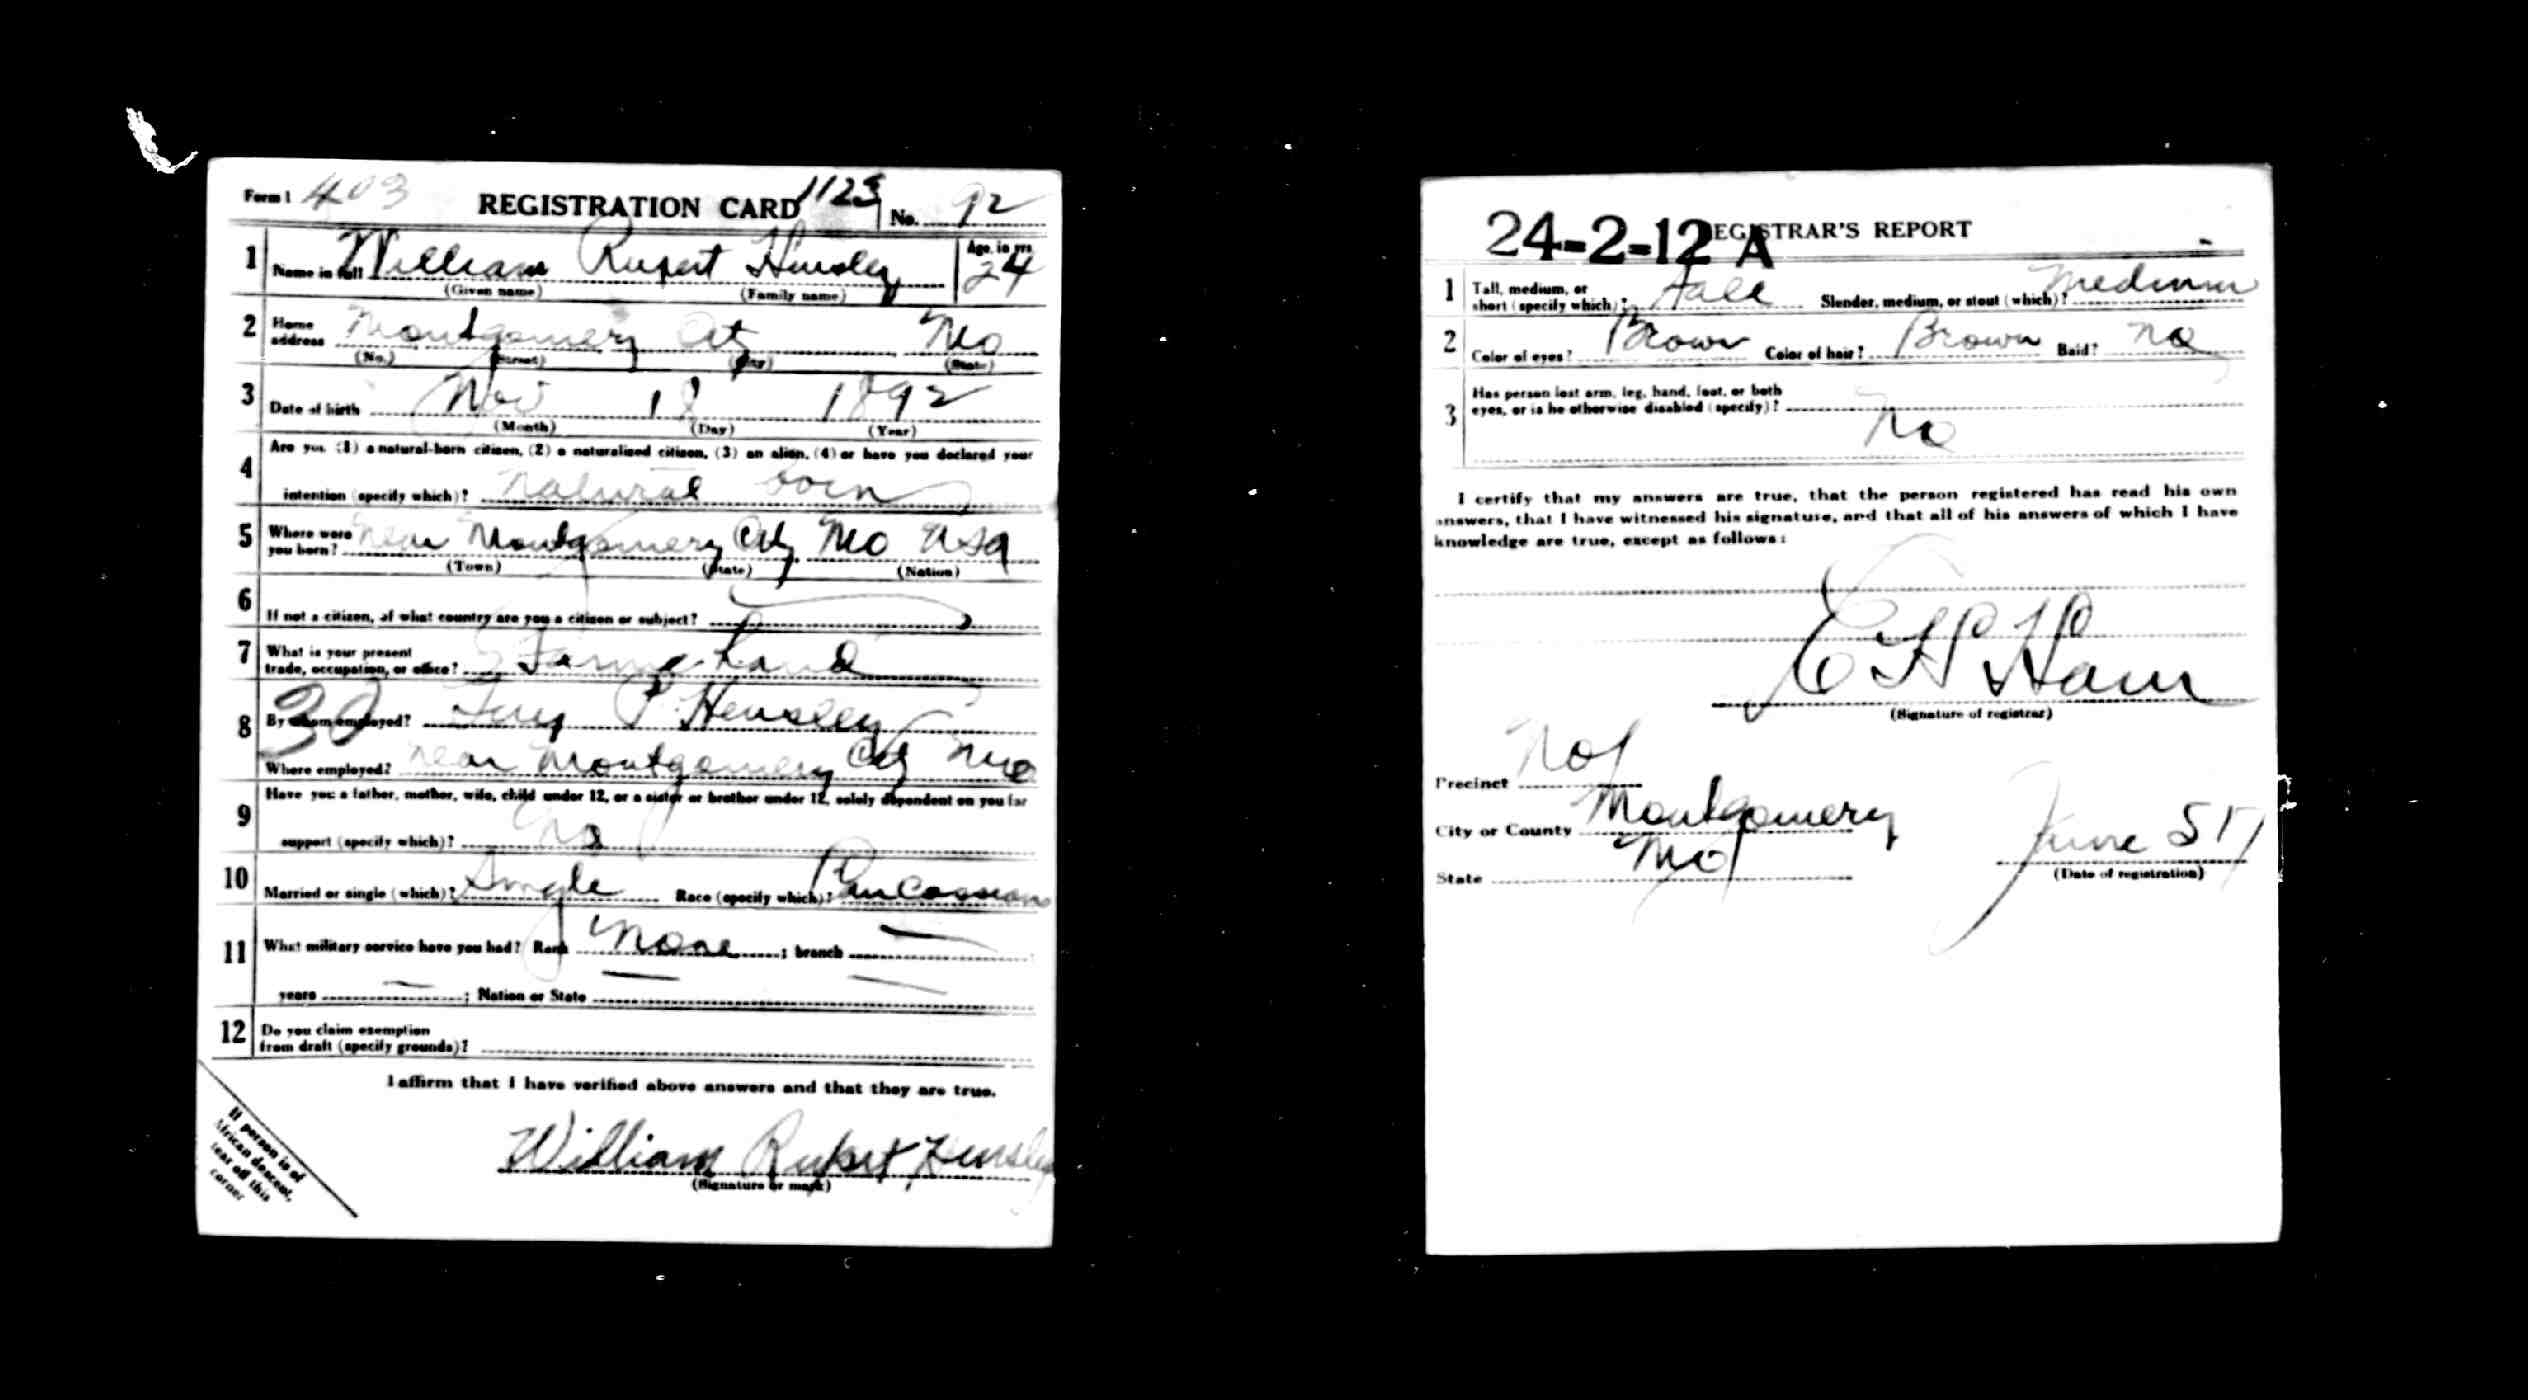 Form 1 403 REGISTRATION CARD 1123 No. 92
1 Name in full William Rupert Hensley Age, in yrs. 24
(Given name) (Family name)
2 Home address Montgomery City Mo
(No.) (Street) (City) (State)
3 Date of birth Nov 18 1892
(Month) (Day) (Year)
4 Are you (1) a natural-born citizen, (2) a naturalized citizen, (3) an alien, (4) or have you declared your
intention (specify which)? natural born
5 Where were you born? near Montgomery City Mo USA
(Town) (State) (Nation)
6 If not a citizen, of what country are you a citizen or subject?
7 What is your present
trade, occupation, or office? Farm hand
8 By whom employed? P. Hensley
30
Where employed? near Montgomery City Mo
9 Have you a father, mother, wife, child under 12, or a sister or brother under 12, solely dependent on you for
support (specify which)? No
10 Married or single (which)? Single Race (specify which)? Caucasian
11 What military service have you had? Rank None ; branch —
years — ; Nation or State —
12 Do you claim exemption
from draft (specify grounds)?
I affirm that I have verified above answers and that they are true.
William Rupert Hensley
(Signature or mark)
If person is of
African descent,
tear off this
corner
24-2-12 A REGISTRAR'S REPORT
1 Tall, medium, or
short (specify which)? Tall Slender, medium, or stout (which)? Medium
2 Color of eyes? Brown Color of hair? Brown Bald? No
3 Has person lost arm, leg, hand, foot, or both
eyes, or is he otherwise disabled (specify)?
No
I certify that my answers are true, that the person registered has read his own
answers, that I have witnessed his signature, and that all of his answers of which I have
knowledge are true, except as follows:
Ham
(Signature of registrar)
Precinct No 1
City or County Montgomery
State Mo
June 5 17
(Date of registration)